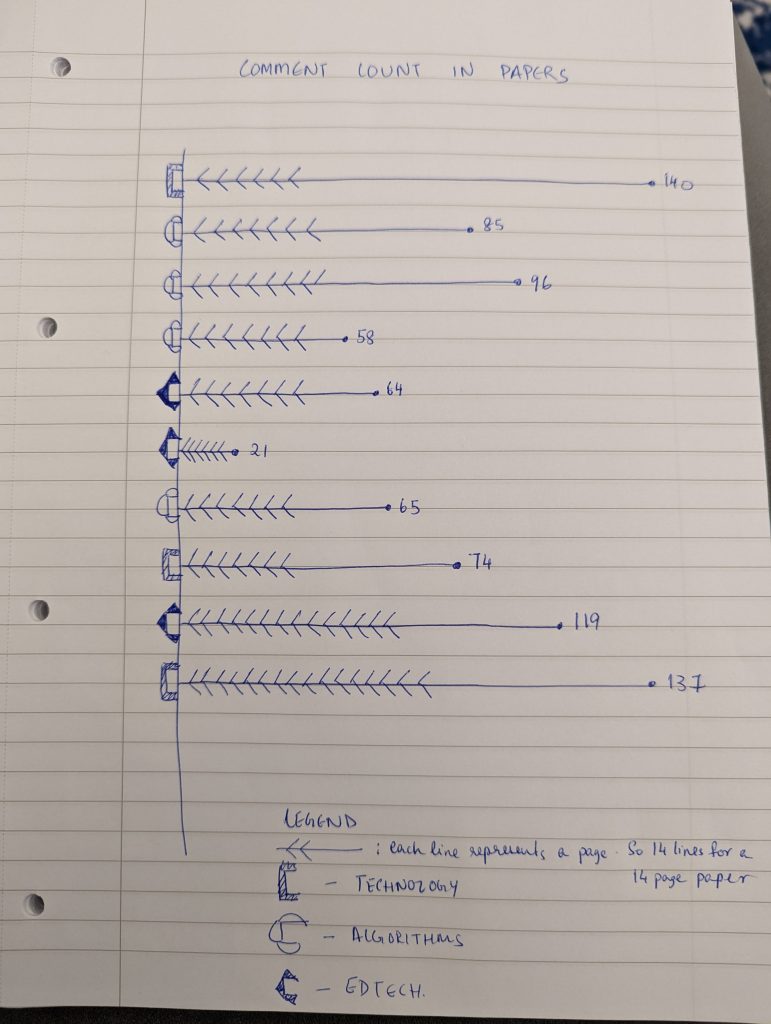 COMMENT COUNT IN PAPERS
140
85
96
58
64
21
65
74
119
137
LEGEND
: each line represents a page. So 14 lines for a
14 page paper
- TECHNOLOGY
- ALGORITHMS
- EDTECH.